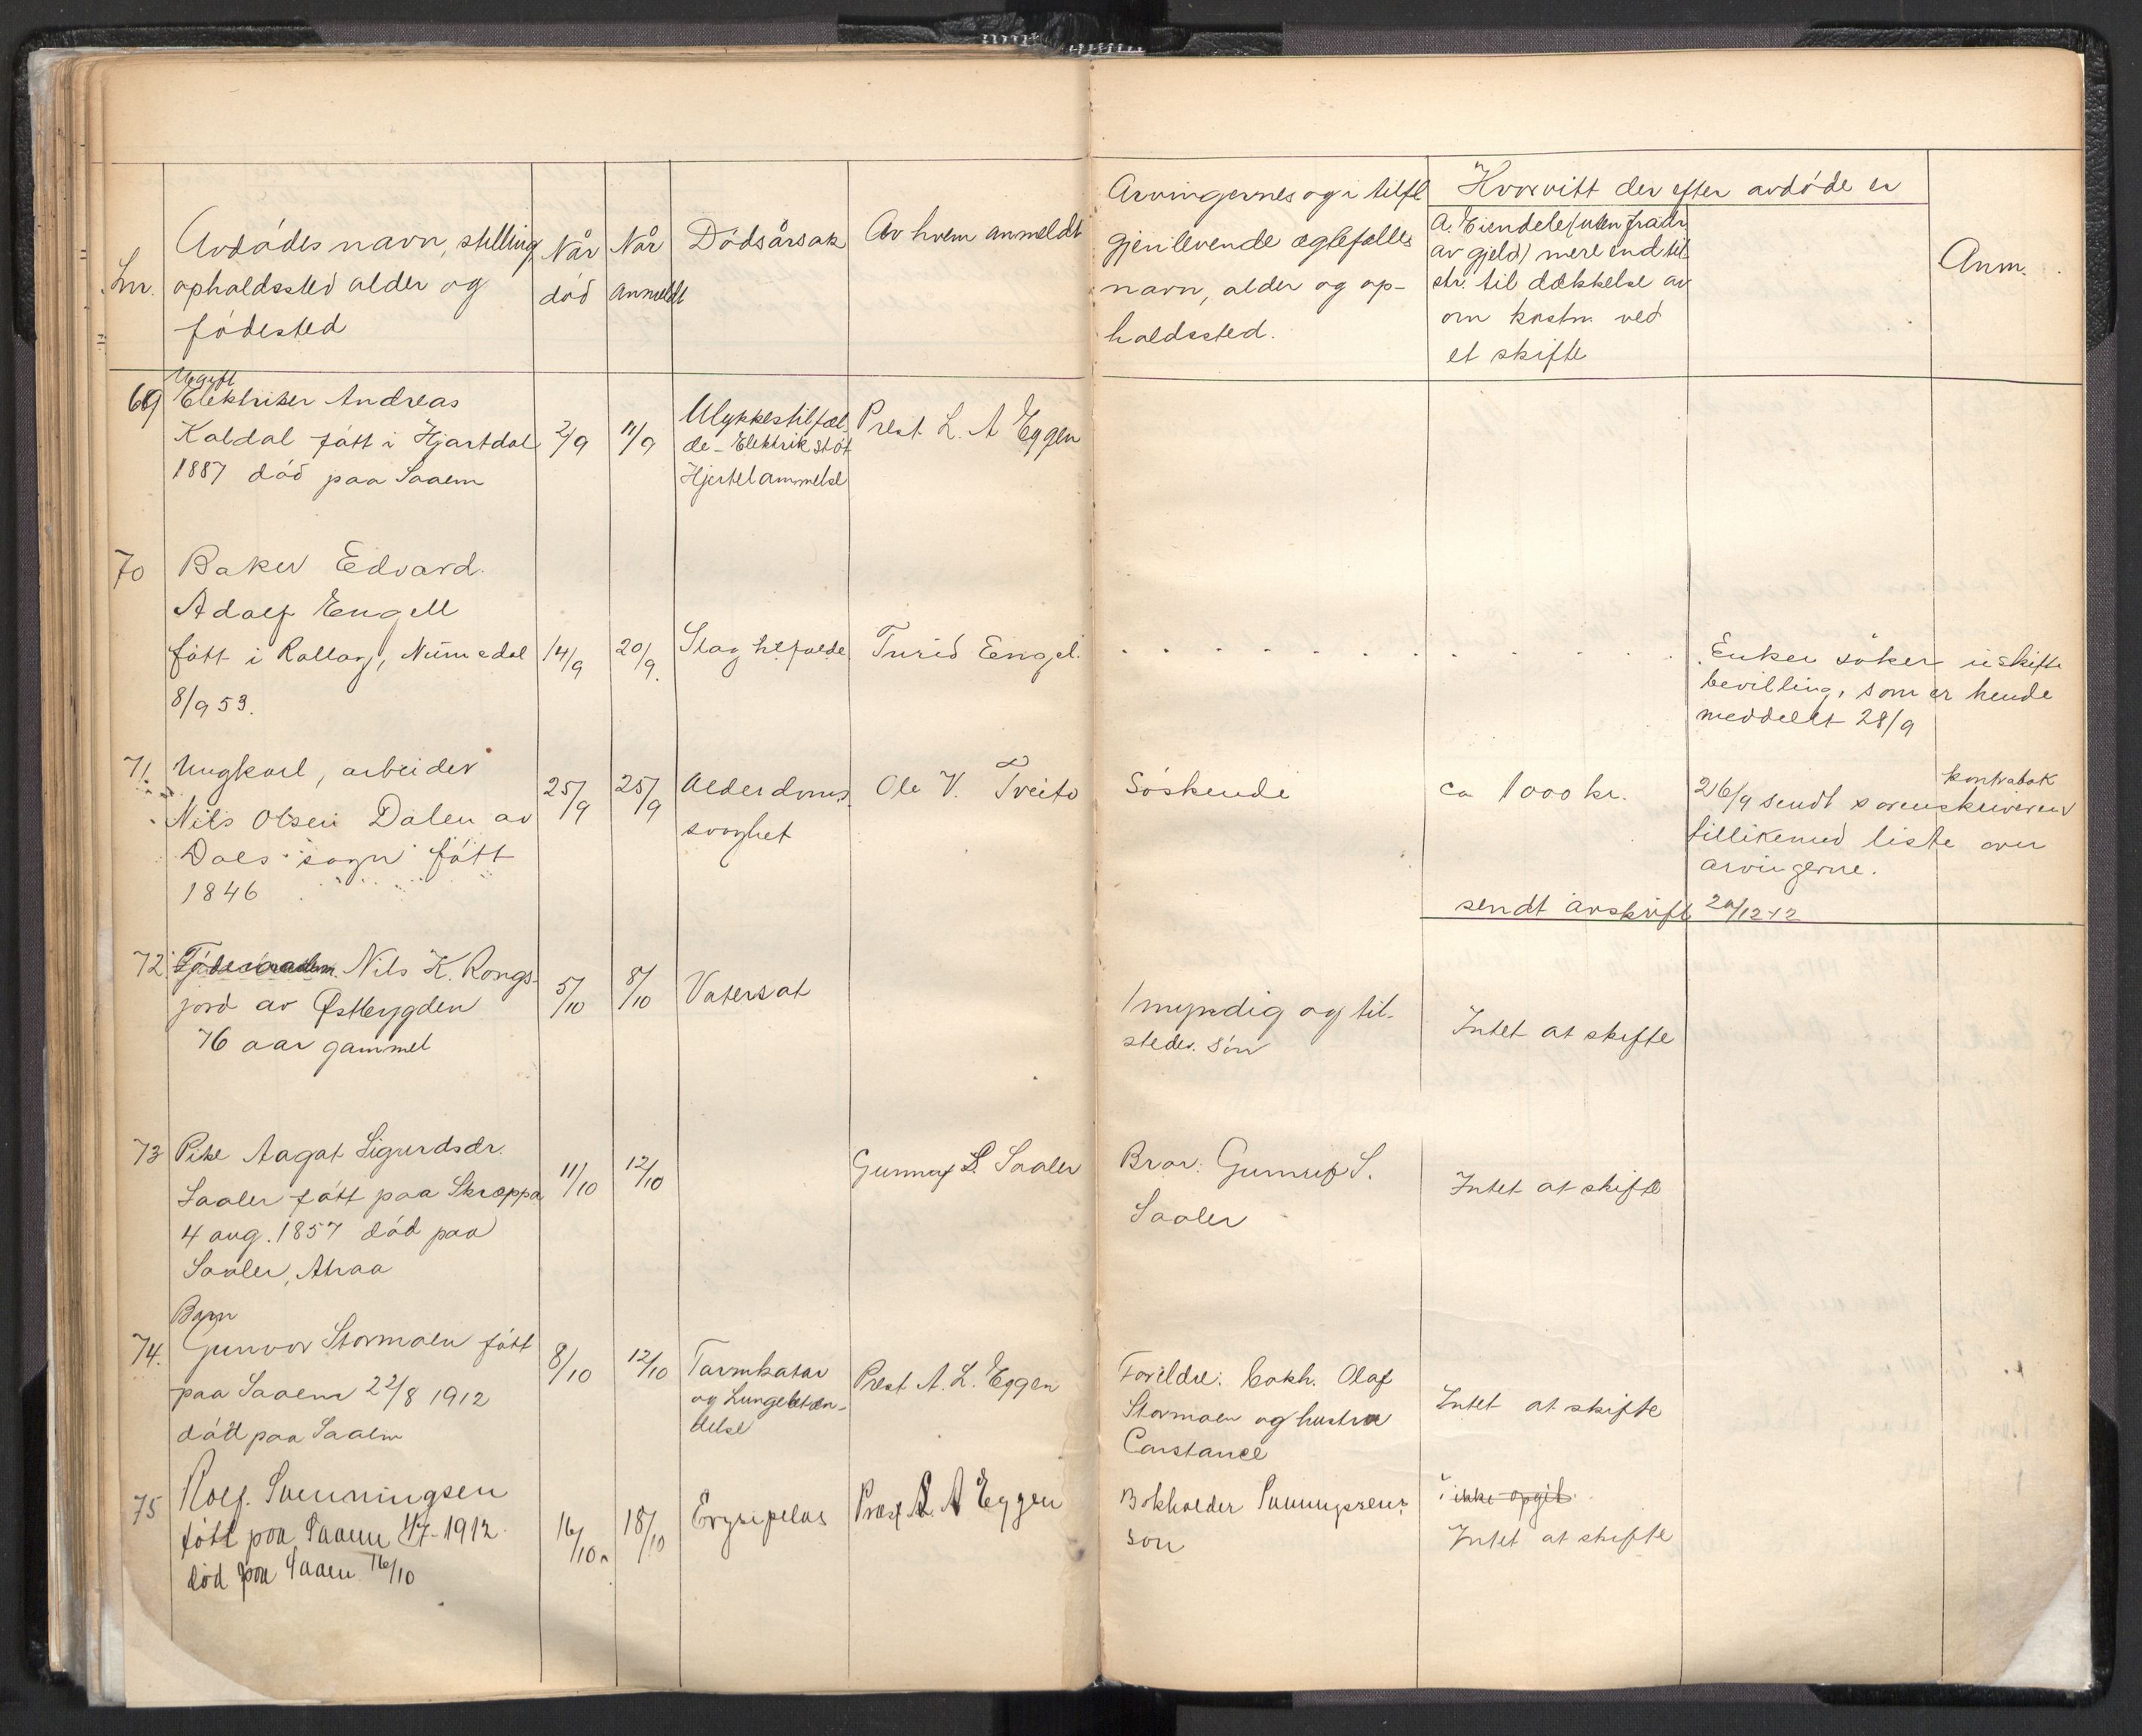 Lnr.
Avdødes navn, stilling
opholdssted alder og
fødested
Når
død
Når
anmeldt
Dødsårsak
Av hvem anmeldt
Arvingernes og i tilfl
gjenlevende ægtefælles
navn, alder og op-
holdssted.
Hvorvitt der efter avdøde er
A. Eiendele (uten fradr.
av gjeld) mere end til-
str. til dækkelse av
om kostn. ved
et skifte
Anm.
69
Ugift
Elektriker Andreas
Kaldal født i Hjartdal
1887 død paa Saaem
2/9
11/9
Ulykkestilfæl-
de - Elektrik støt
Hjertelammelse
Prest L. A Eggen
70
Baker Edvard
Adolf Engell
født i Rollag, Numedal
8/9 53.
14/9
20/9
Slag
Turid Engel.
Enken søker uskifte
bevilling, som er hende
meddellt 28/9
71.
Ungkarl, arbeider
Nils Olsen Dalen av
Dals sogn født
1846
25/9
25/9
Alderdoms
svaghet
Ole V. Tveito
Søskende
ca 1000 kr.
kontrabok
26/9 sendt sorenskriveren
tillikemed liste over
arvingerne.
sendt avskrift 20/12-12
72
Nils K. Rongs-
jord av Østbygden
76 aar gammel
5/10
8/10
Vatersot
1 myndig og til-
stedev. søn
Intet at skifte
73
Pike Aagot Sigurdsdr.
Saaler født paa Skroppa
4 aug. 1857 død paa
Saaler, Atraa
11/10
12/10
Gunnuf S. Saaler
Bror: Gunnuf S.
Saaler
Intet at skifte
Barn
74.
Gunvor Stormoen født
paa Saaem 22/8 1912
død paa Saaem
8/10
12/10
Tarmkatar
og Lungebetæn-
delse
Prest A. L. Eggen
Forældre: bokh. Olaf
Stormoen og hustru
Constance
Intet at skifte
75
Rolf. Svenningsen
født paa Saaem 4/7-1912
død paa Saaem 16/10
16/10
18/10
Erysipelas
Prest L A Eggen
Bokholder Svenningsens
søn
ikke opgit
Intet at skifte